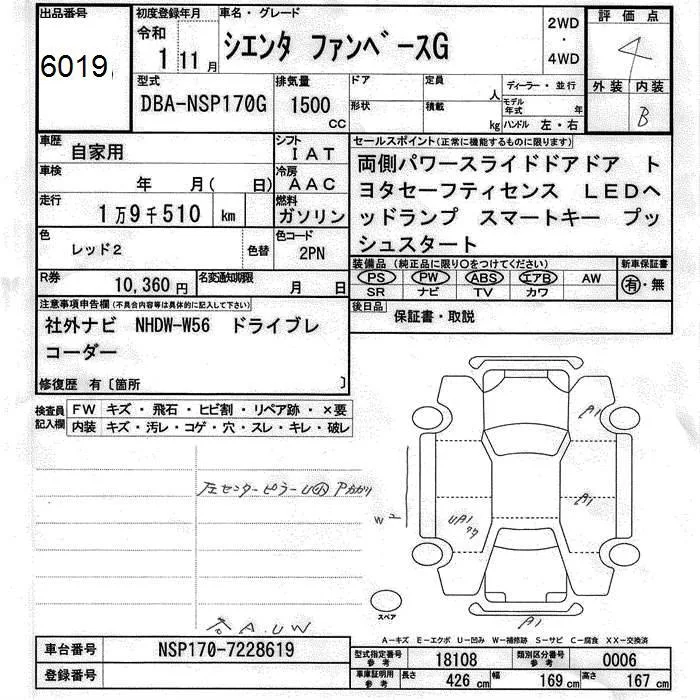 出品番号
6019
初度登録年月
令和
1 11月
車名・グレード
シエンタ ファンベースG
2WD
・
4WD
評価点
4
外装 内装
B
型式
DBA-NSP170G
排気量
1500
CC
ドア 定員
人
形状 積載
kg
ディーラー・並行
モデル年式 年
ハンドル 左・右
車歴
自家用
シフト
IAT
車検
年 月( 日)
冷房
AAC
走行
1万9千510 km
燃料
ガソリン
色
レッド2
色替
色コード
2PN
R券
10,360円
名変通知期限
月 日
セールスポイント(正常に機能するものに限ります)
両側パワースライドドアドア ト
ヨタセーフティセンス LEDヘ
ッドランプ スマートキー プッ
シュスタート
装備品(純正品に限り○をつけてください)
PS PW ABS エアB AW
SR ナビ TV カワ
新車保証書
有・無
後日品
保証書・取説
注意事項申告欄(不具合内容等は具体的に記入して下さい)
社外ナビ NHDW-W56 ドライブレ
コーダー
修復歴 有〔箇所 〕
検査員
記入欄
FW キズ・飛石・ヒビ割・リペア跡・×要
内装 キズ・汚レ・コゲ・穴・スレ・キレ・破レ
左センターピラー
A.UW
A1
A1
UA1
W2
A1
スペア
A-キズ E-エクボ U-凹み W-補修跡 S-サビ C-腐食 XX-交換済
車台番号
NSP170-7228619
登録番号
型式指定番号
参考
18108
類別区分番号
参考
0006
車庫証明用
参考
長さ 426 cm 幅 169 cm 高さ 167 cm